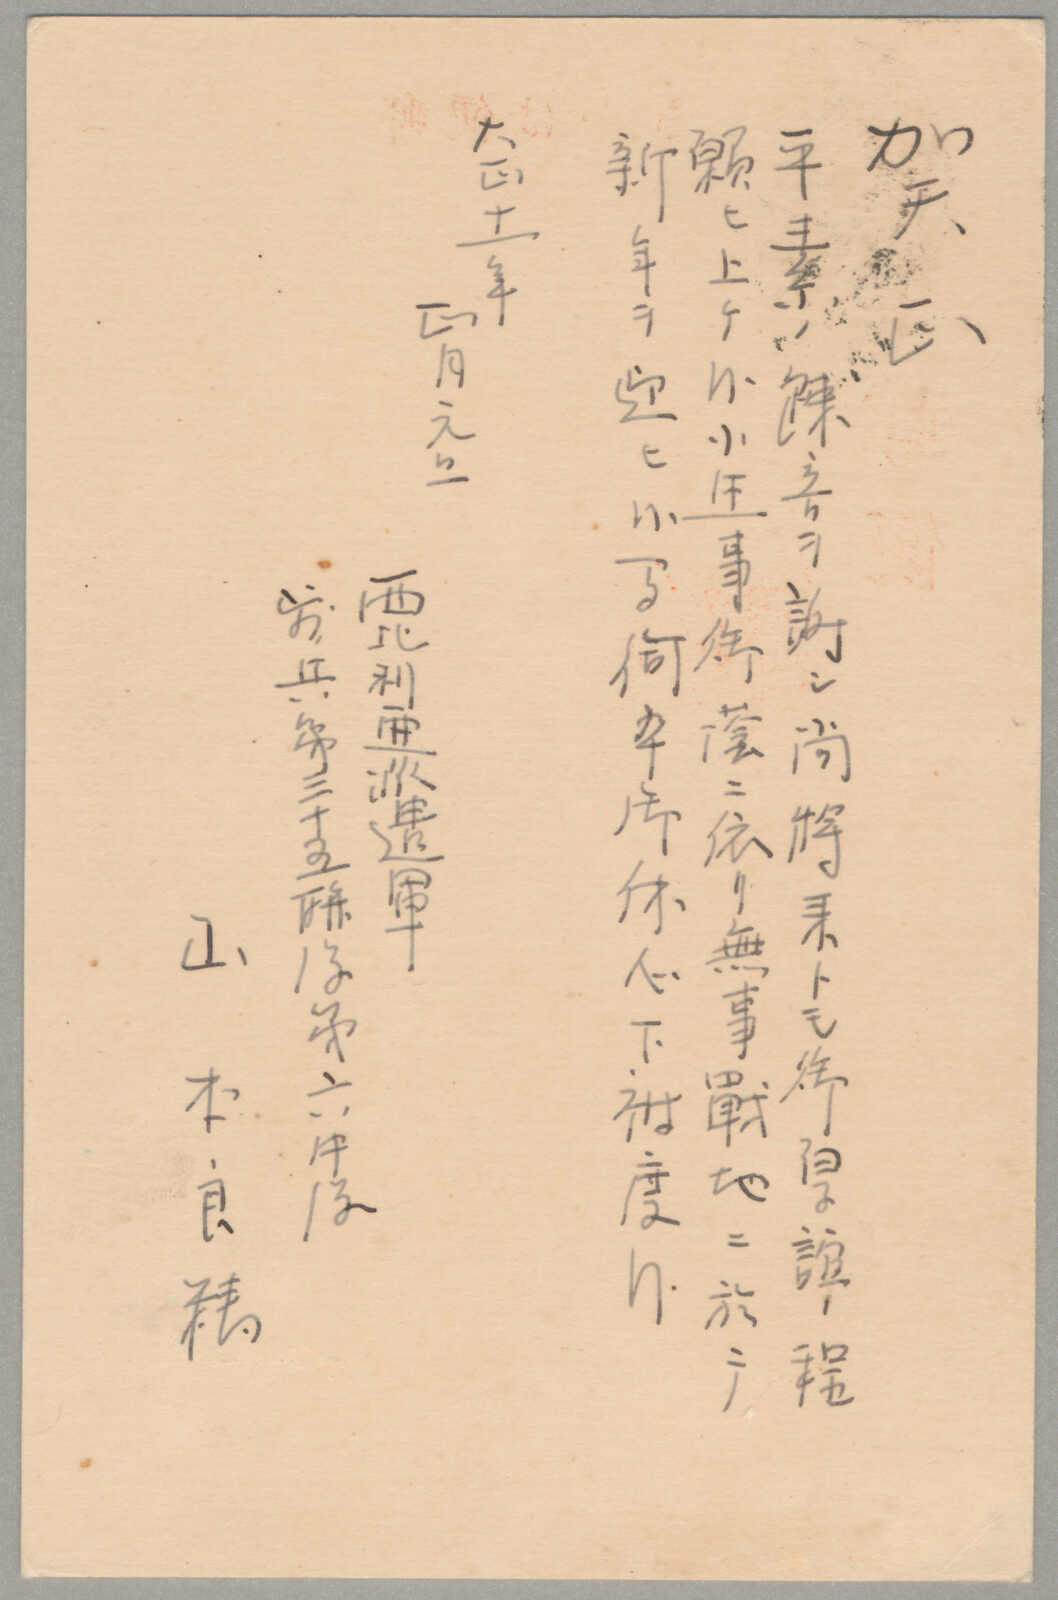 賀正
平素ノ疎音ヲ謝シ尚将来トモ御厚誼ノ程
願ヒ上ケ候小生事御蔭ニ依リ無事戰地ニ於テ
新年ヲ迎ヒ候間何卒御休心下被度候
大正十一年
正月元旦
西比利亜派遣軍
歩兵第三十五聯隊第六中隊
山本良